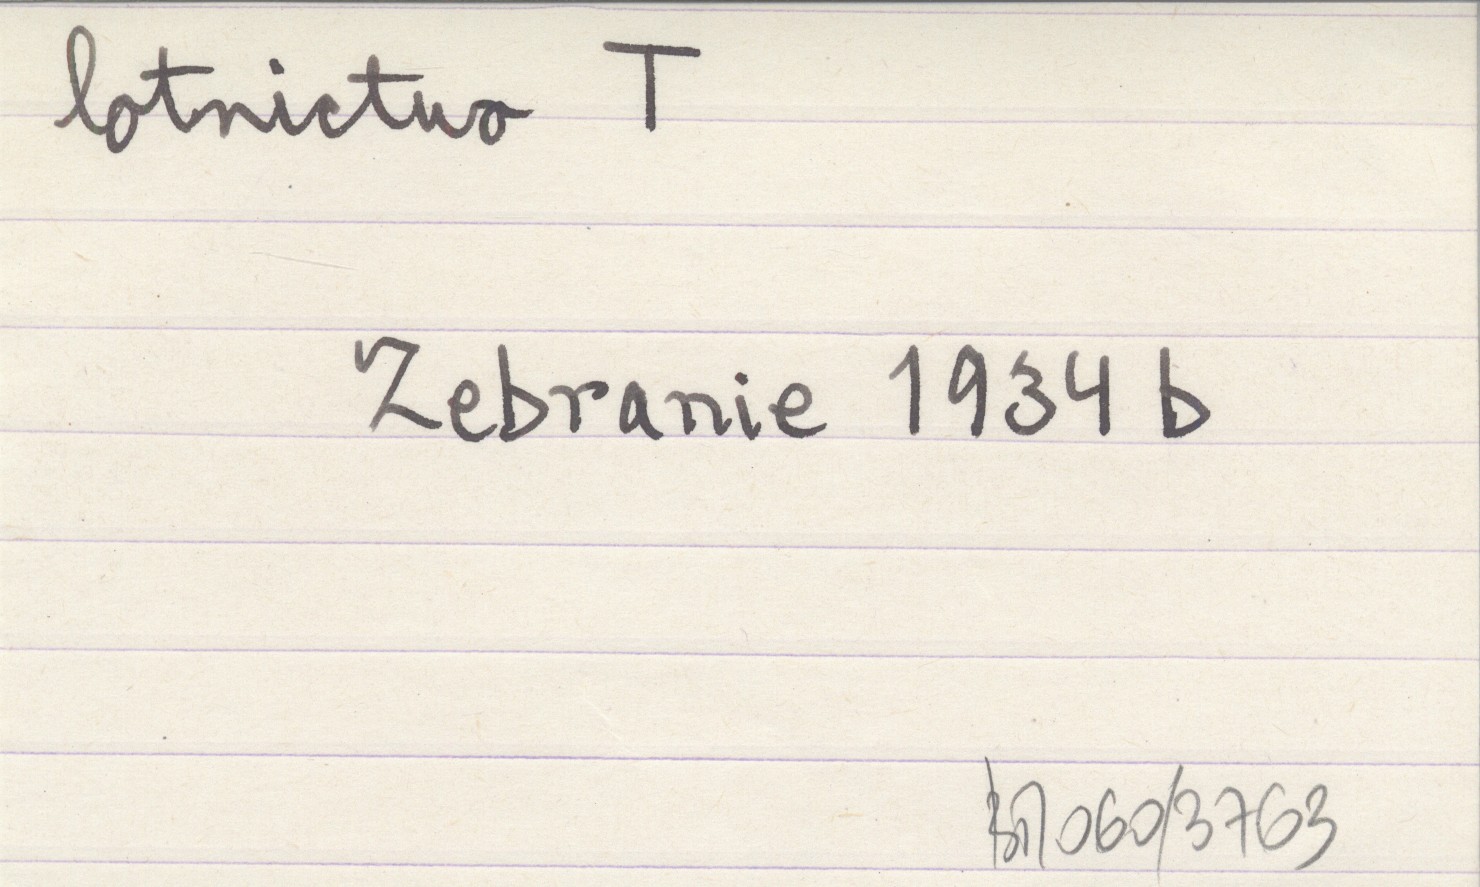 lotnictwo T
Zebranie 1934 b
060/3763